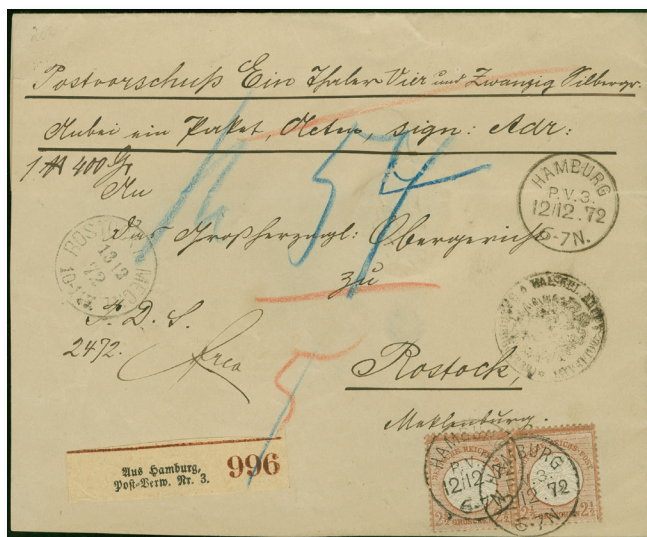 Postvorschuß Ein Thaler Vier und Zwanzig Silbergr.
Anbei ein Paket, Acten, sign: Adr:
1 ℔ 400 Gr
An
Das Großherzogl: Obergericht
zu
Rostock,
Mecklenburg.
F. D. S.
2472.
54
5
HAMBURG
P.V.3.
12/12.72
6-7N.
ROSTOCK MECKL
13 12
72
Aus Hamburg,
Post-Verw. Nr. 3.
996
HAMBURG
P.V.3.
12/12.72
6-7N.
HAMBURG
P.V.3.
12 12 72
6-7N.
2½ GROSCHEN 2½